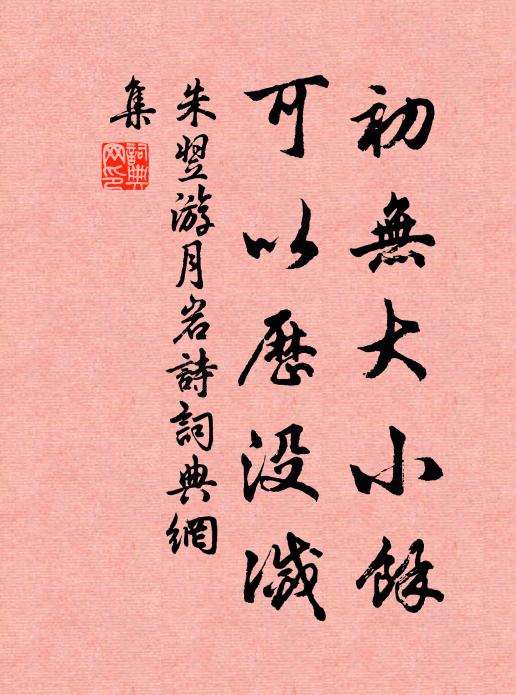 初無大小餘
可以歷沒滅
朱翌游月岩詩詞典網
集
詞典網印